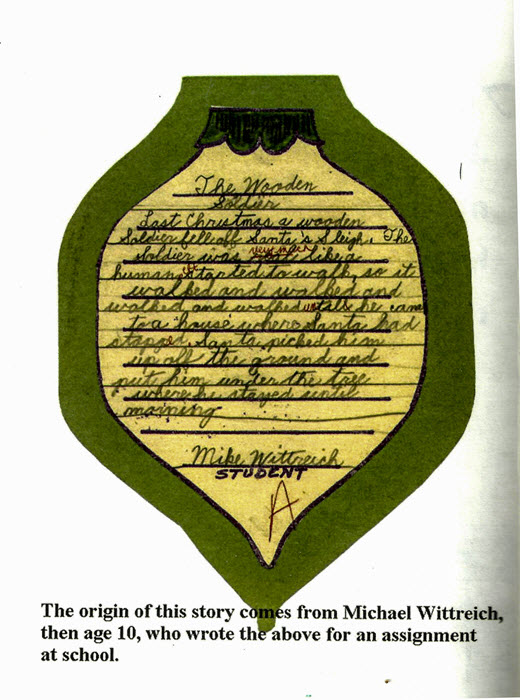 The Wooden
Soldier
Last Christmas a wooden
Soldier fell off Santa's Sleigh. The
Soldier was very much like a
human started to walk, so it
walked and walked and
walked and walked untill he came
to a house where Santa had
stopped. Santa picked him
up off the ground and
put him under the tree
where he stayed until
morning
Mike Wittreich
STUDENT
A
The origin of this story comes from Michael Wittreich,
then age 10, who wrote the above for an assignment
at school.